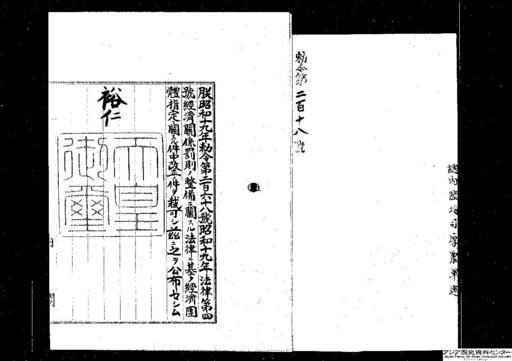 勅令第二百十八號
朕昭和十九年勅令第二百六十八號昭和十九年法律第四
號經濟關係罰則ノ整備ニ關スル法律ニ基ク經濟團
體指定ニ關スル件中改正ノ件ヲ裁可シ茲ニ之ヲ公布セシム
裕仁
天皇
御璽
アジア歴史資料センター